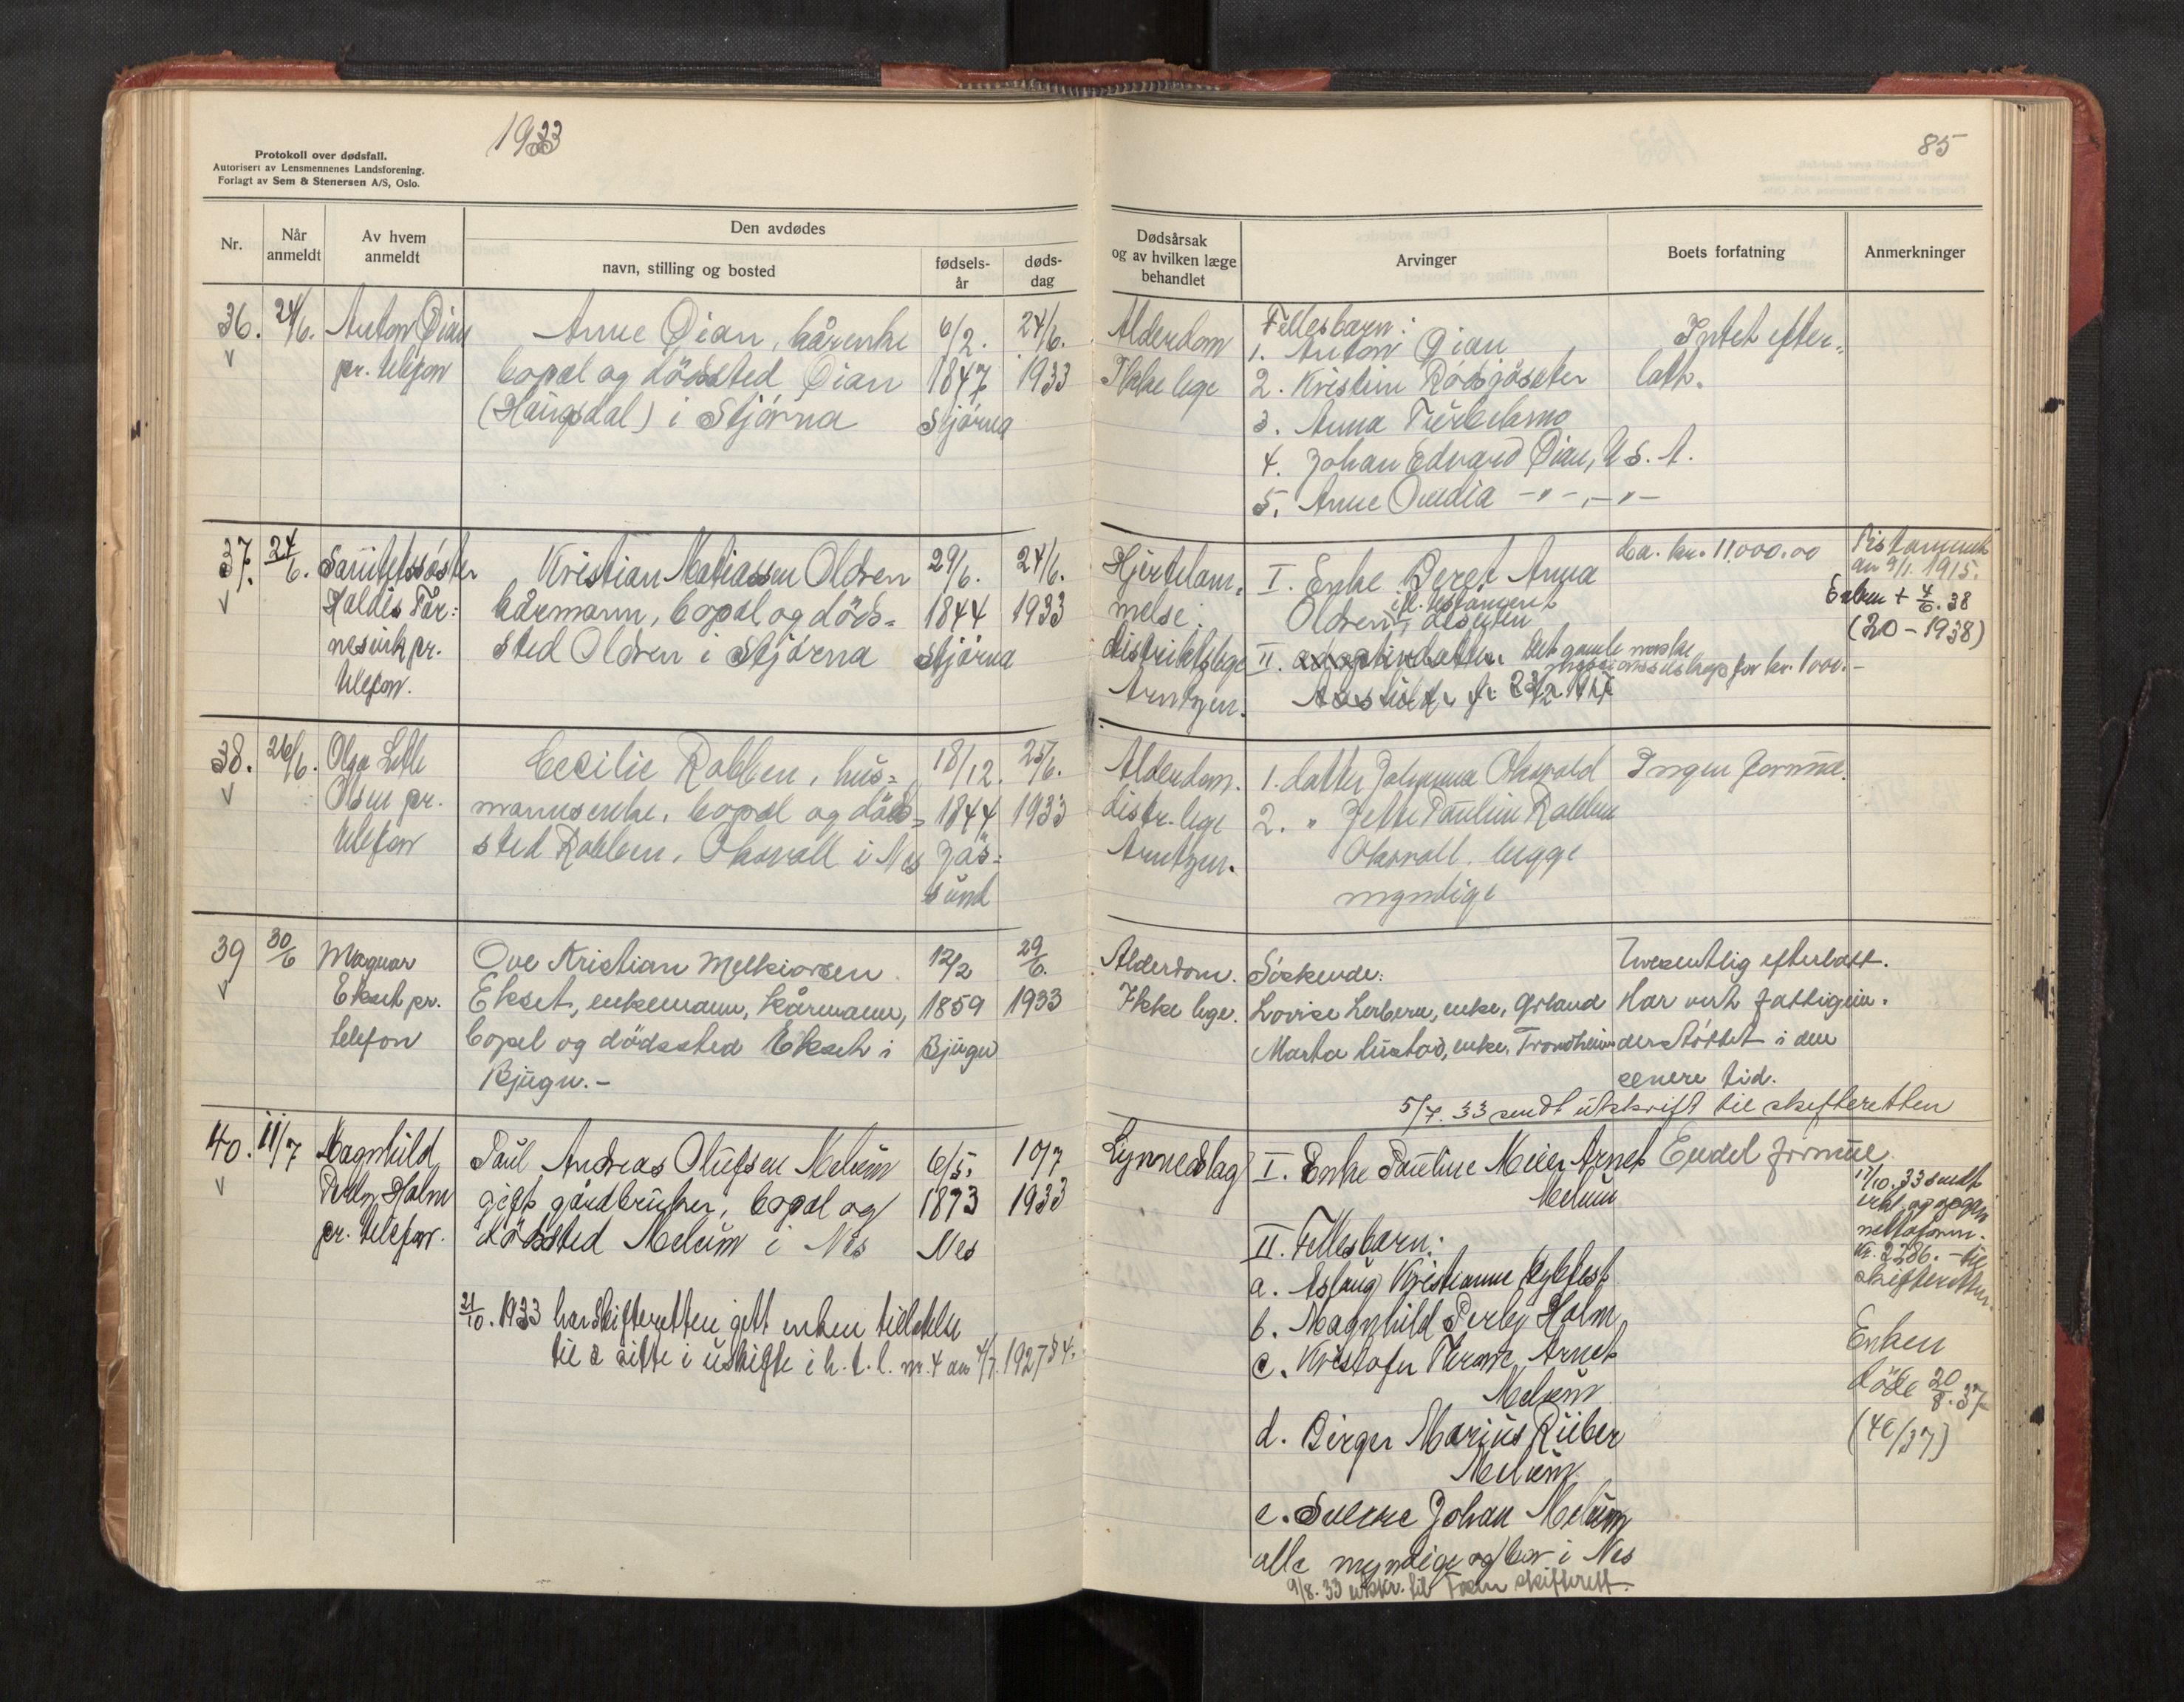 1933
85
Protokoll over dødsfall.
Autorisert av Lensmennenes Landsforening.
Forlagt av Sem & Stenersen A/S, Oslo.
Nr.
Når anmeldt
Av hvem anmeldt
Den avdødes
navn, stilling og bosted
fødsels-år
døds-dag
Dødsårsak og av hvilken læge behandlet
Arvinger
Boets forfatning
Anmerkninger
36. 24/6. Anton Øian Anne Øian, kårenke 6/2. 24/6.
pr. telefon bopæl og dödssted Øian 1847 1933
(Haugsdal) i Stjørna Stjørna
Alderdom
Ikke lege
Fellesbarn:
1. Anton Øian
2. Kristine Rödsjöseter
3. Anna
4. Johan Edvard Øian, U.S.A.
5. Anne Ovedia -"-, -"-
Intet efter-
latt.
37. 24/6. Sanitetssøster Kristian Matiassen Oldren 29/6. 24/6.
Haldis Tår- kårmann, bopæl og döds- 1844 1933
nesvik pr. sted Oldren i Stjørna Stjørna
telefon.
Hjertelam-
melse.
distriktslege
Arntzen.
I. Enke Beret Anna
Oldren,
ifl. testament
II. Det gamle norske
for kr. 1000.-
Ca. kr. 11000.00
Testament
av 9/1. 1915.
Enken + 4/6. 38
(20 - 1938)
38. 26/6. Olga Cecilie Rabben, hus- 18/12. 25/6.
Olsen pr. mannsenke, bopæl og död- 1844 1933
telefon sted Rabben, Oksvoll i Nes Jös-
sund
Alderdom.
distr. lege
Arntzen.
1. datter Johanna Oksvold
2. " Jette Pauline Rabben
Oksvoll. begge
myndige
Ingen formue.
39 30/6 Magnar Ove Kristian Melkiorsen 12/2 29/6.
Ekset pr. Ekset, enkemann, kårmann, 1859 1933
telefon bopel og dödssted Ekset i Bjugn
Bjugn.-
Alderdom.
Ikke lege.
Søskende:
Lovise Lerbern, enke, Ørland
Marta Hustad, enke, Trondheim
Uvesentlig efterlatt.
Har vert fattigun-
derstöttet i den
senere tid.
5/7. 33 sendt utskrift til skifteretten
40. 11/7 Magnhild Paul Andreas Olufsen Melum 6/5. 10/7
Holm gift gårdbruker, bopæl og 1873 1933
pr. telefon. dödssted Melum i Nes Nes
21/10. 1933 har skifteretten gitt enken tillatelse
til å sitte i uskifte i h. t. l. nr. 4 av 4/7. 1927 § 4.
Lynnedslag
I. Enke Pauline Meier Arnet
Melum
II. Fellesbarn:
a. Aslaug Kristianne
b. Magnhild Perby Holm
c. Kristofer Arnet
Melum
d. Birger Marius Rüber
Melum
e. Sverre Johan Melum
alle myndige og bor i Nes
9/8. 33 utskr. til Fosen skifterett.
Endel formue.
17/10. 33 sendt
nettoform.
kr. 2786. - til
skifteretten.
Enken
døde 20/8. 37
(40/37)